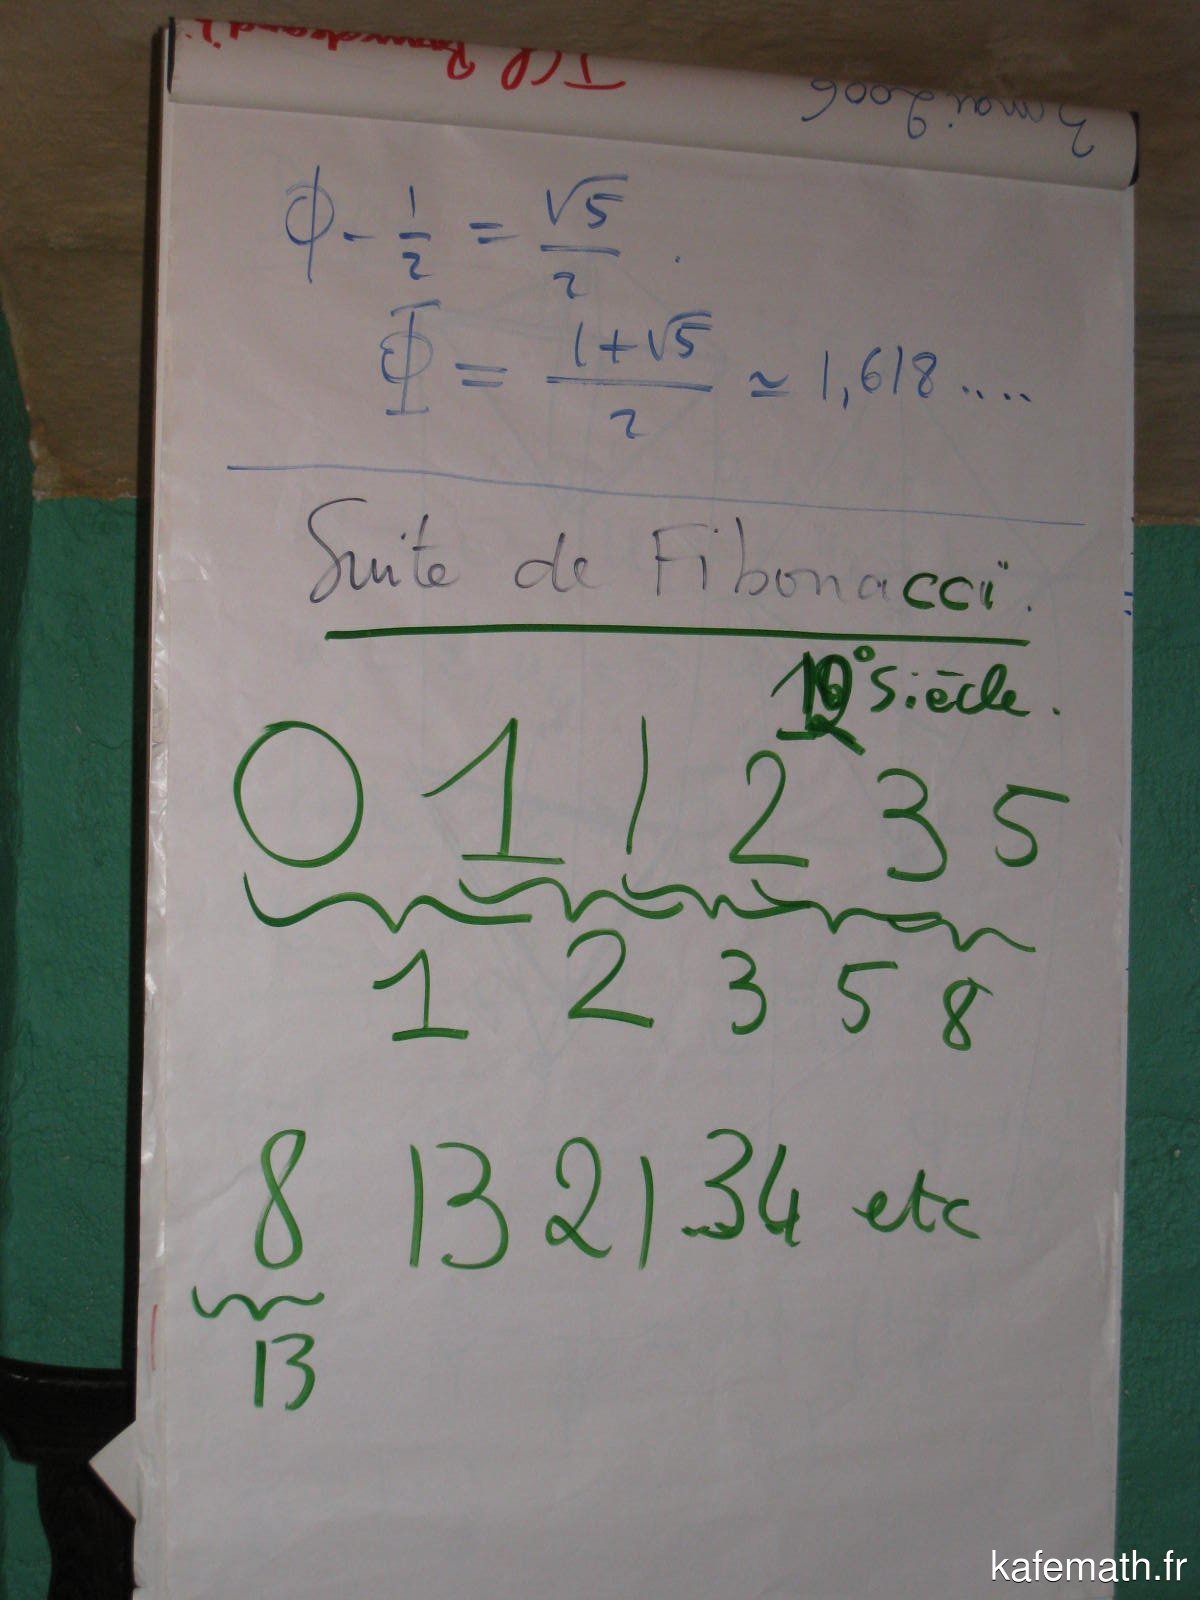 3 mai 2006
Φ - 1/2 = √5/2 .
Φ = (1+√5)/2 ≃ 1,618 ....
Suite de Fibonacci.
siècle.
0 1 1 2 3 5
1 2 3 5 8
8 13 21 34 etc
13
kafemath.fr